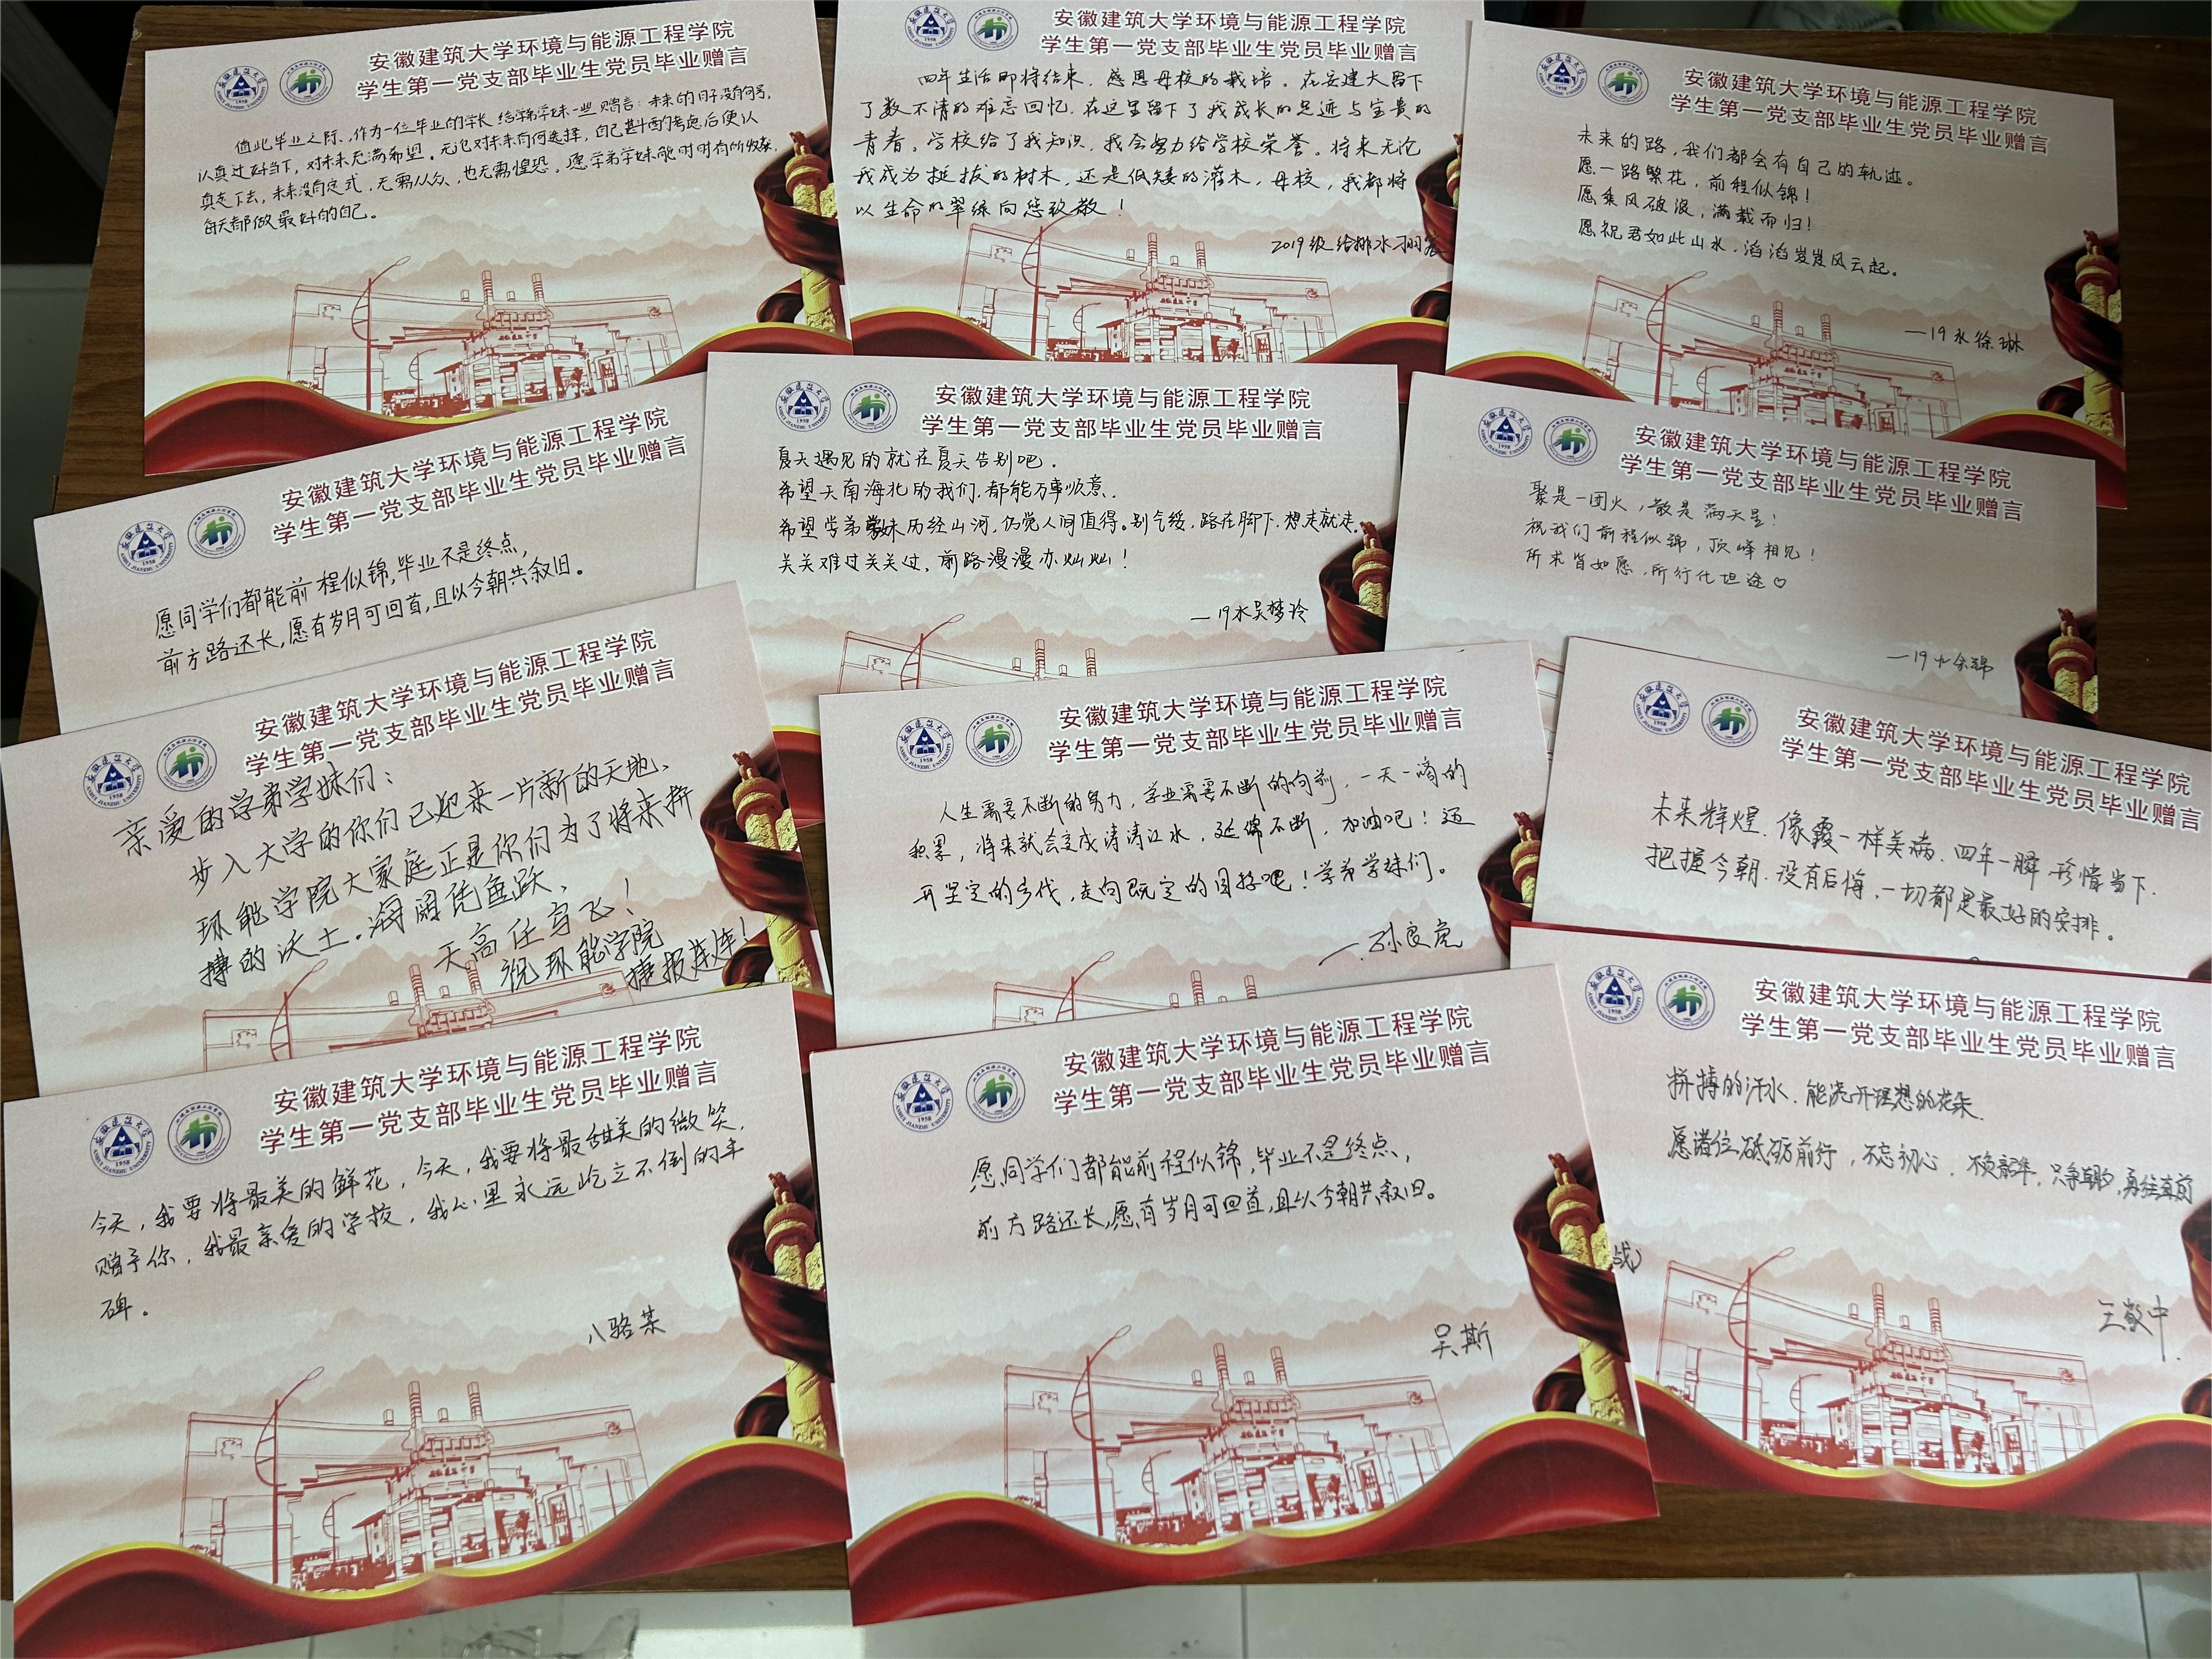 安徽建筑大学环境与能源工程学院
学生第一党支部毕业生党员毕业赠言
值此毕业之际、作为一位毕业的学长给学弟学妹一些赠言:未来的日子没有句号,
认真过好当下,对未来充满希望。无论对未来有何选择,自己斟酌考虑后便认
真走下去,未来没有定式,无需从众,也无需惶恐。愿学弟学妹能时时有所收获,
每天都做最好的自己。
安徽建筑大学环境与能源工程学院
学生第一党支部毕业生党员毕业赠言
四年生活即将结束,感恩母校的栽培。在安建大留下
了数不清的难忘回忆,在这里留下了我成长的足迹与宝贵的
青春。学校给了我知识,我会努力给学校荣誉。将来无论
我成为挺拔的树木,还是低矮的灌木,母校,我都将
以生命的翠绿向您致敬!
2019级给排水
安徽建筑大学环境与能源工程学院
学生第一党支部毕业生党员毕业赠言
未来的路,我们都会有自己的轨迹。
愿一路繁花,前程似锦!
愿乘风破浪,满载而归!
愿祝君如此山水,滔滔岌岌风云起。
—19水徐琳
安徽建筑大学环境与能源工程学院
学生第一党支部毕业生党员毕业赠言
愿同学们都能前程似锦,毕业不是终点,
前方路还长,愿有岁月可回首,且以今朝共叙旧。
安徽建筑大学环境与能源工程学院
学生第一党支部毕业生党员毕业赠言
夏天遇见的就在夏天告别吧.
希望天南海北的我们.都能万事顺意.
希望学弟学妹历经山河,仍觉人间值得。别气馁,路在脚下.想走就走.
关关难过关关过,前路漫漫亦灿灿!
—19水吴梦玲
安徽建筑大学环境与能源工程学院
学生第一党支部毕业生党员毕业赠言
聚是一团火,散是满天星!
祝我们前程似锦,顶峰相见!
所求皆如愿,所行化坦途♡
—19水余锦
安徽建筑大学环境与能源工程学院
学生第一党支部毕业生党员毕业赠言
亲爱的学弟学妹们:
步入大学的你们已迎来一片新的天地、
环能学院大家庭正是你们为了将来拼
搏的沃土。海阔凭鱼跃、
天高任鸟飞!
祝环能学院
捷报连连!
安徽建筑大学环境与能源工程学院
学生第一党支部毕业生党员毕业赠言
人生需要不断的努力,学业需要不断的向前,一天一滴的
积累,将来就会变成涛涛江水,延绵不断,加油吧!迈
开坚定的步伐,走向既定的目标吧!学弟学妹们。
—孙良虎
安徽建筑大学环境与能源工程学院
学生第一党支部毕业生党员毕业赠言
未来辉煌.像霞一样美满.四年一瞬 珍惜当下.
把握今朝.没有后悔,一切都是最好的安排。
安徽建筑大学环境与能源工程学院
学生第一党支部毕业生党员毕业赠言
今天,我要将最美的鲜花,今天,我要将最甜美的微笑,
赠予你,我最亲爱的学校,我心里永远屹立不倒的丰
碑。
八骆某
安徽建筑大学环境与能源工程学院
学生第一党支部毕业生党员毕业赠言
愿同学们都能前程似锦,毕业不是终点,
前方路还长,愿有岁月可回首,且以今朝共叙旧。
吴斯
安徽建筑大学环境与能源工程学院
学生第一党支部毕业生党员毕业赠言
拼搏的汗水.能浇开理想的花朵.
愿诸位砥砺前行,不忘初心.不负韶华,只争朝夕,勇往直前
战)
王敬中.